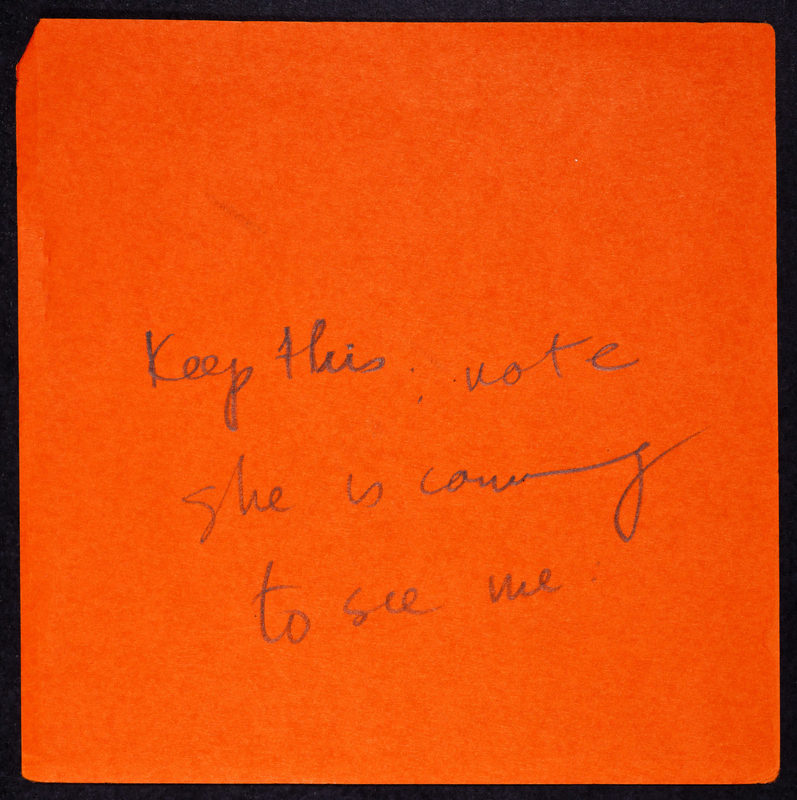 Keep this. note
she is coming
to see me.